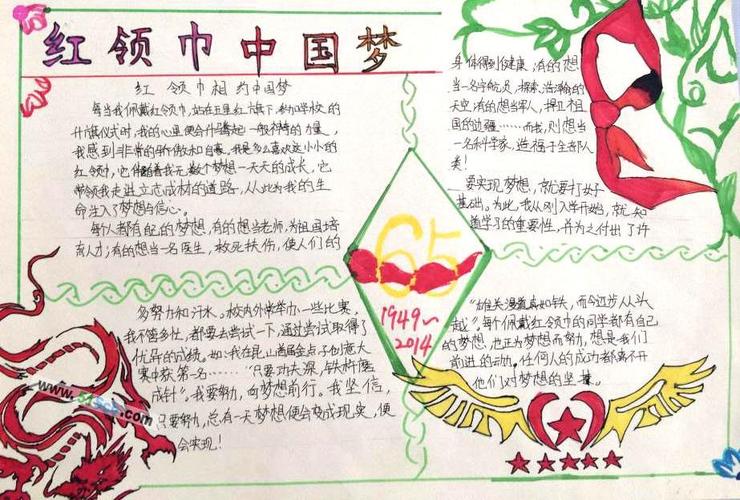 红领巾中国梦
红领巾相约中国梦
每当我佩戴红领巾,站在五星红旗下,参加学校的
升旗仪式时,我的心里便会升腾起一股神奇的力量,
我感到非常的骄傲和自豪。我是多么喜欢这小小的
红领巾,它伴随着我无数个梦想一天天的成长,它
带领我走进立志成材的道路,从此为我的生
命注入了梦想与信心。
每人都有自己的梦想,有的想当老师,为祖国培
育人才;有的想当一名医生,救死扶伤,使人们的
身体得到健康;有的想
当一名宇航员,探索浩瀚的
天空;有的想当军人,捍卫祖
国的边疆……而我,则想当
一名科学家,造福于全部人
类!
要实现梦想,就要打好
基础。为此,我从刚入学开始,就知
道学习的重要性,并为之付出了许
多努力和汗水。校内外常举办一些比赛,
我不管多忙,都要去尝试一下,通过尝试取得了
优异的成绩。如:我在昆山首届金点子创意大
赛中获第一名……“只要功夫深,铁杵磨
成针”。我要努力,向梦想前行。我坚信,
只要努力,总有一天梦想便会变成现实,便
会实现!
“雄关漫道真如铁,而今迈步从头
越”。每个佩戴红领巾的同学都有自己
的梦想,也正为梦想而努力,想是我们
前进的动力。任何人的成功都离不开
他们对梦想的坚持。
65
1949~
2014
www.515cc.com